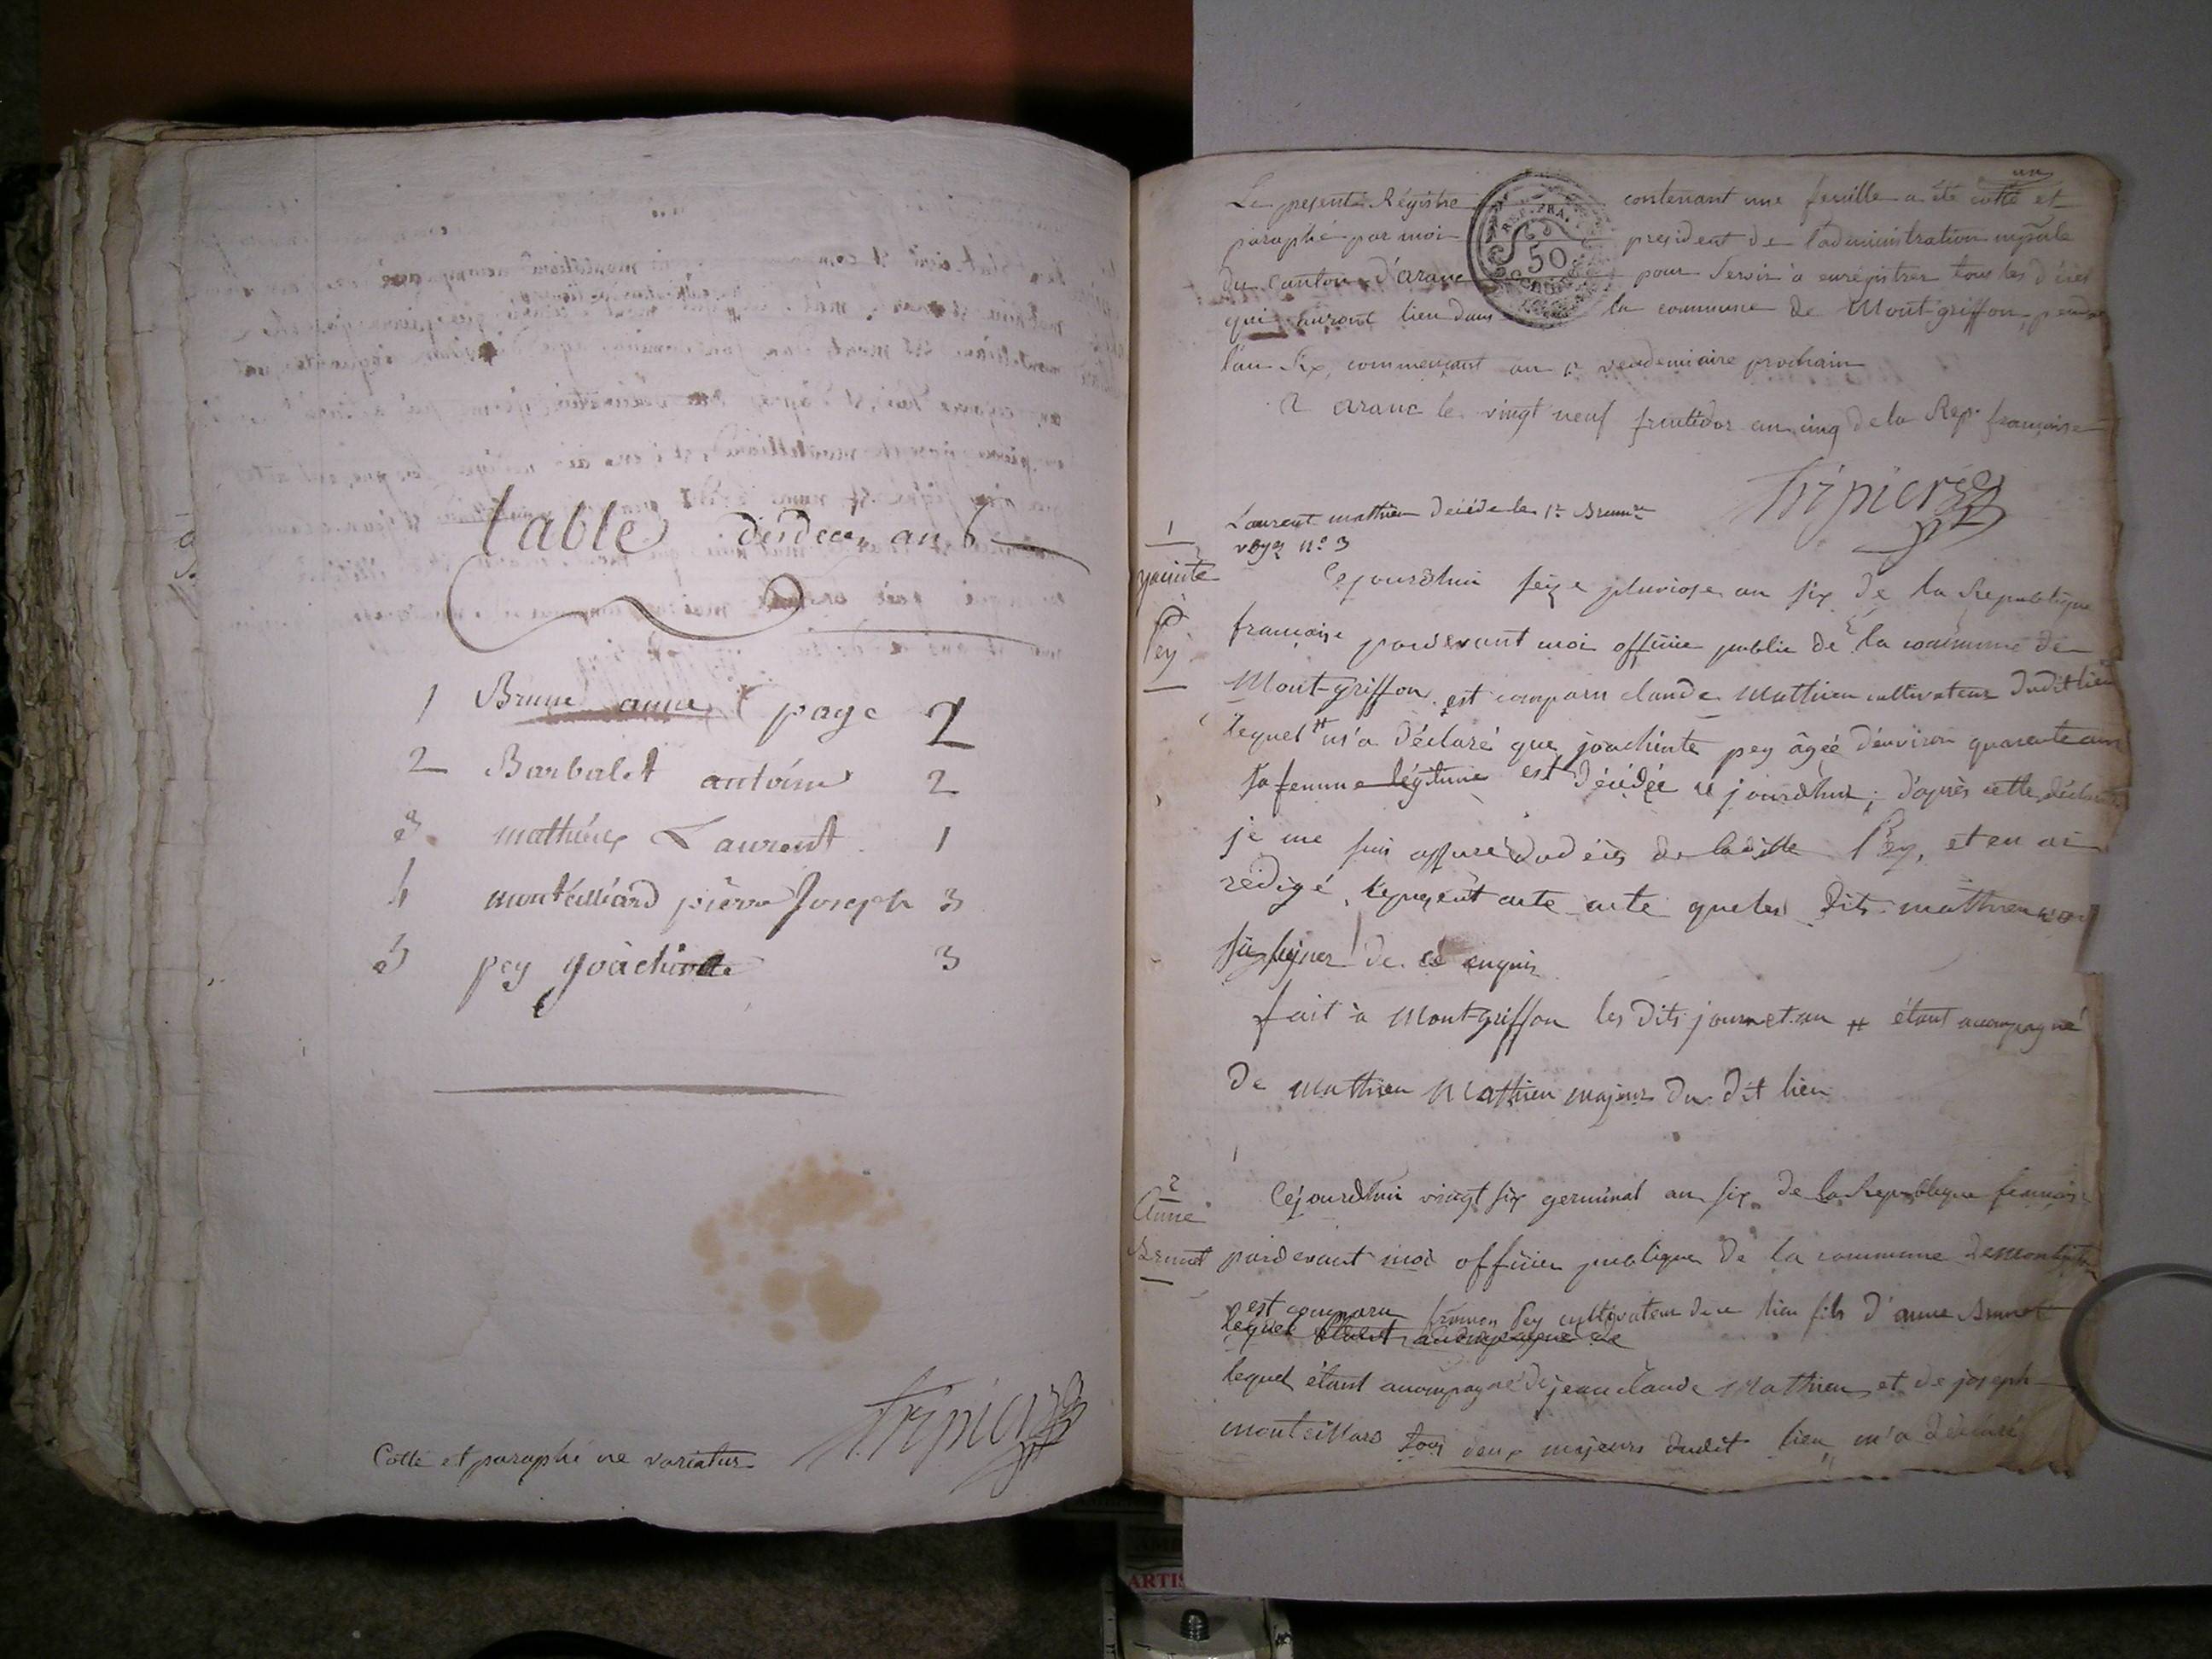 table des deces an 6
1 Brune anne page 2
2 Barbalet antoine 2
3 mathieu Laurent 1
4 monteilliard pierre Joseph 3
5 pey joachinte 3
Cotté et paraphé ne varietur Tripier
un
Le présente Régistre contenant une feuille a été cotté et
paraphé par moi président de l'administration mpale
du canton d'aranc pour servir à enrégistrer tous les décès
qui auront lieu dans la commune de Mont-griffon, pendt
l'an six, commençant au 1r vendemiaire prochain
a aranc le vingt neuf fructidor an cinq de la Rep. françoise
REP. FRA.
50
Tripier
Laurent mathieu décédé le 1r Brumre
voyez no 3
1
yacinte
Pey
Cejourdhui seize pluviose an six de la Republique
francoise pardevant moi officier public de la commune de
Mont-griffon est comparu claude Mathieu cultivateur dudit lieu
lequel # m'a déclaré que joachinte pey âgée d'environ quarente ans
sa femme légitime est décédée cejourdhui; d'après cette déclaration
je me suis assuré du décès de la ditte Pey, et en ai
rédigé le present acte acte que les dits mathieu n'ont
sû signer de ce enquis
fait à Mont-Griffon les dits jour et an # étant acompagné
de mathieu Mathieu majeur du dit lieu
2
Anne
Brunet
Cejourdhui vingt six germinal an six de la Republique francoise
pardevant moi officier publique de la commune de montgriffon
est comparu Pey cultivateur de ce lieu fils d'anne Brunet
lequel étant accompagné de
lequel étant acompagné de jean claude Mathieu et de joseph
monteillard tous deux majeurs dudit lieu m'a déclaré
ARTIS